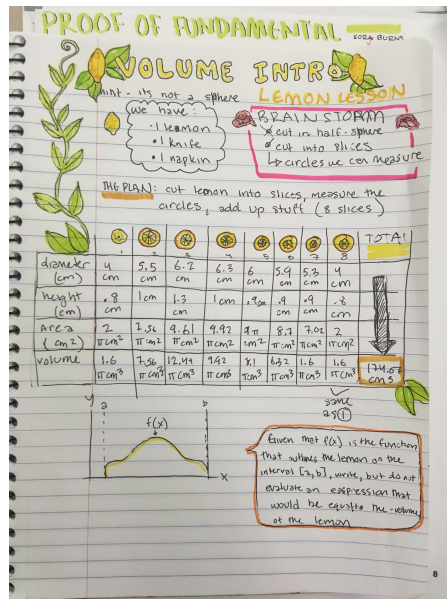 PROOF OF FUNDAMENTAL
KORA BURNS
VOLUME INTRO
hint - its not a sphere
LEMON LESSON
we have:
· 1 lemon
· 1 knife
· 1 napkin
BRAINSTORM
cut in half-sphere
cut into slices
↳ circles we can measure
THE PLAN: cut lemon into slices, measure the
circles, add up stuff (8 slices)
1 2 3 4 5 6 7 8 TOTAL
diameter (cm) 4 cm 5.5 cm 6.2 cm 6.3 cm 6 cm 5.9 cm 5.3 cm 4 cm
height (cm) .8 cm 1cm 1.3 cm 1cm .9cm .9 cm .9 cm .8 cm
Area (cm²) 2 πcm² 7.56 πcm² 9.61 πcm² 9.92 πcm² 9π cm² 8.7 πcm² 7.02 πcm² 2 πcm²
volume 1.6 πcm³ 7.56 πcm³ 12.49 πcm³ 9.92 πcm³ 8.1 πcm³ 6.32 πcm³ 1.6 πcm³ 1.6 πcm³ cm³
same
as ①
y a b
f(x)
x
Given that f(x) is the function
that outlines the lemon on the
interval [a,b], write, but do not
evaluate an expression that
would be equal to the volume
of the lemon
8